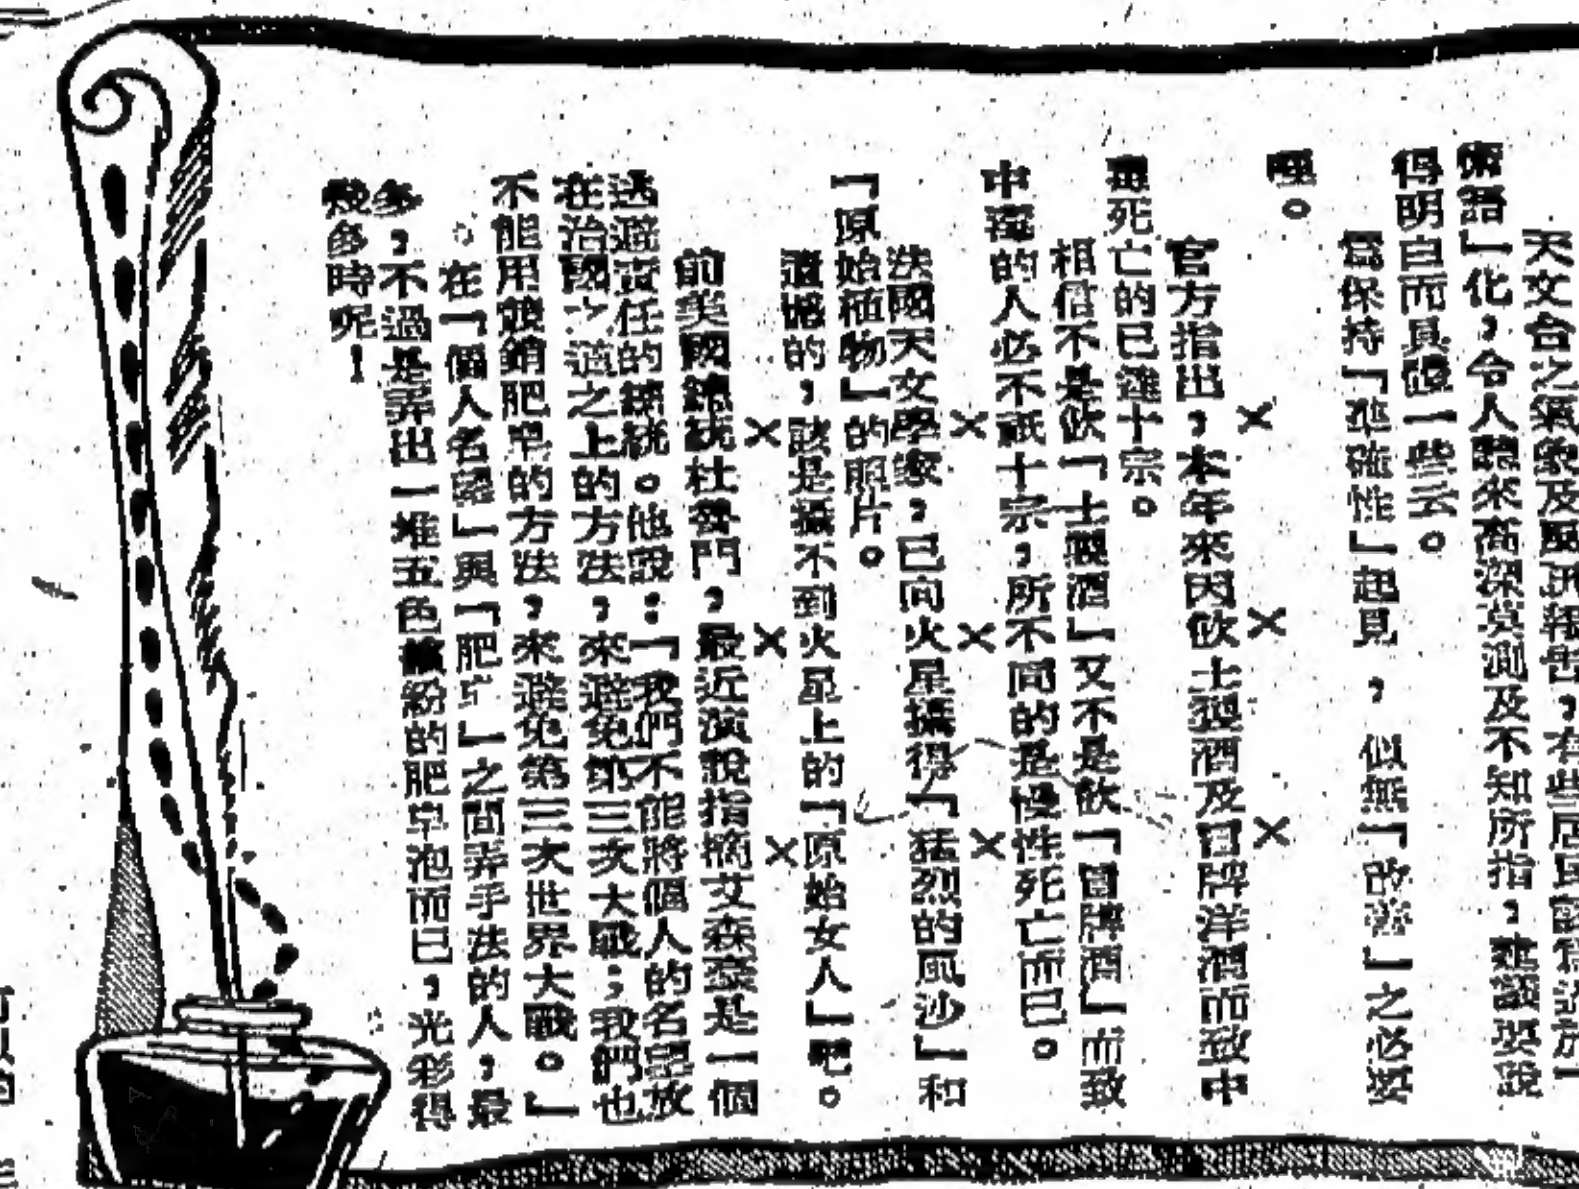 天文台之氣象及風訊報告，有些居民認為過於「
術語」化，令人聽來高深莫測及不知所指，建議要說
得明白而具體一些云。
為保持「準確性」起見，似無「改善」之必要
哩。
×××
官方指出，本年來因飲土製酒及冒牌洋酒而致中
毒死亡的已達十宗。
相信不是飲「土製酒」又不是飲「冒牌酒」而致
中毒的人必不祇十宗，所不同的是慢性死亡而已。
×××
法國天文學家，已向火星攝得「猛烈的風沙」和
「原始植物」的照片。
遺憾的，該是攝不到火星上的「原始女人」吧。
×××
前美國總統杜魯門，最近演說指摘艾森豪是一個
逃避責任的總統。他說：「我們不能將個人的名望放
在治國之道之上的方法，來避免第三次大戰；我們也
不能用競銷肥皂的方法，來避免第三次世界大戰。」
在「個人名望」與「肥皂」之間弄手法的人，最
多，不過是弄出一堆五色繽紛的肥皂泡而已，光彩得
幾多時呢！